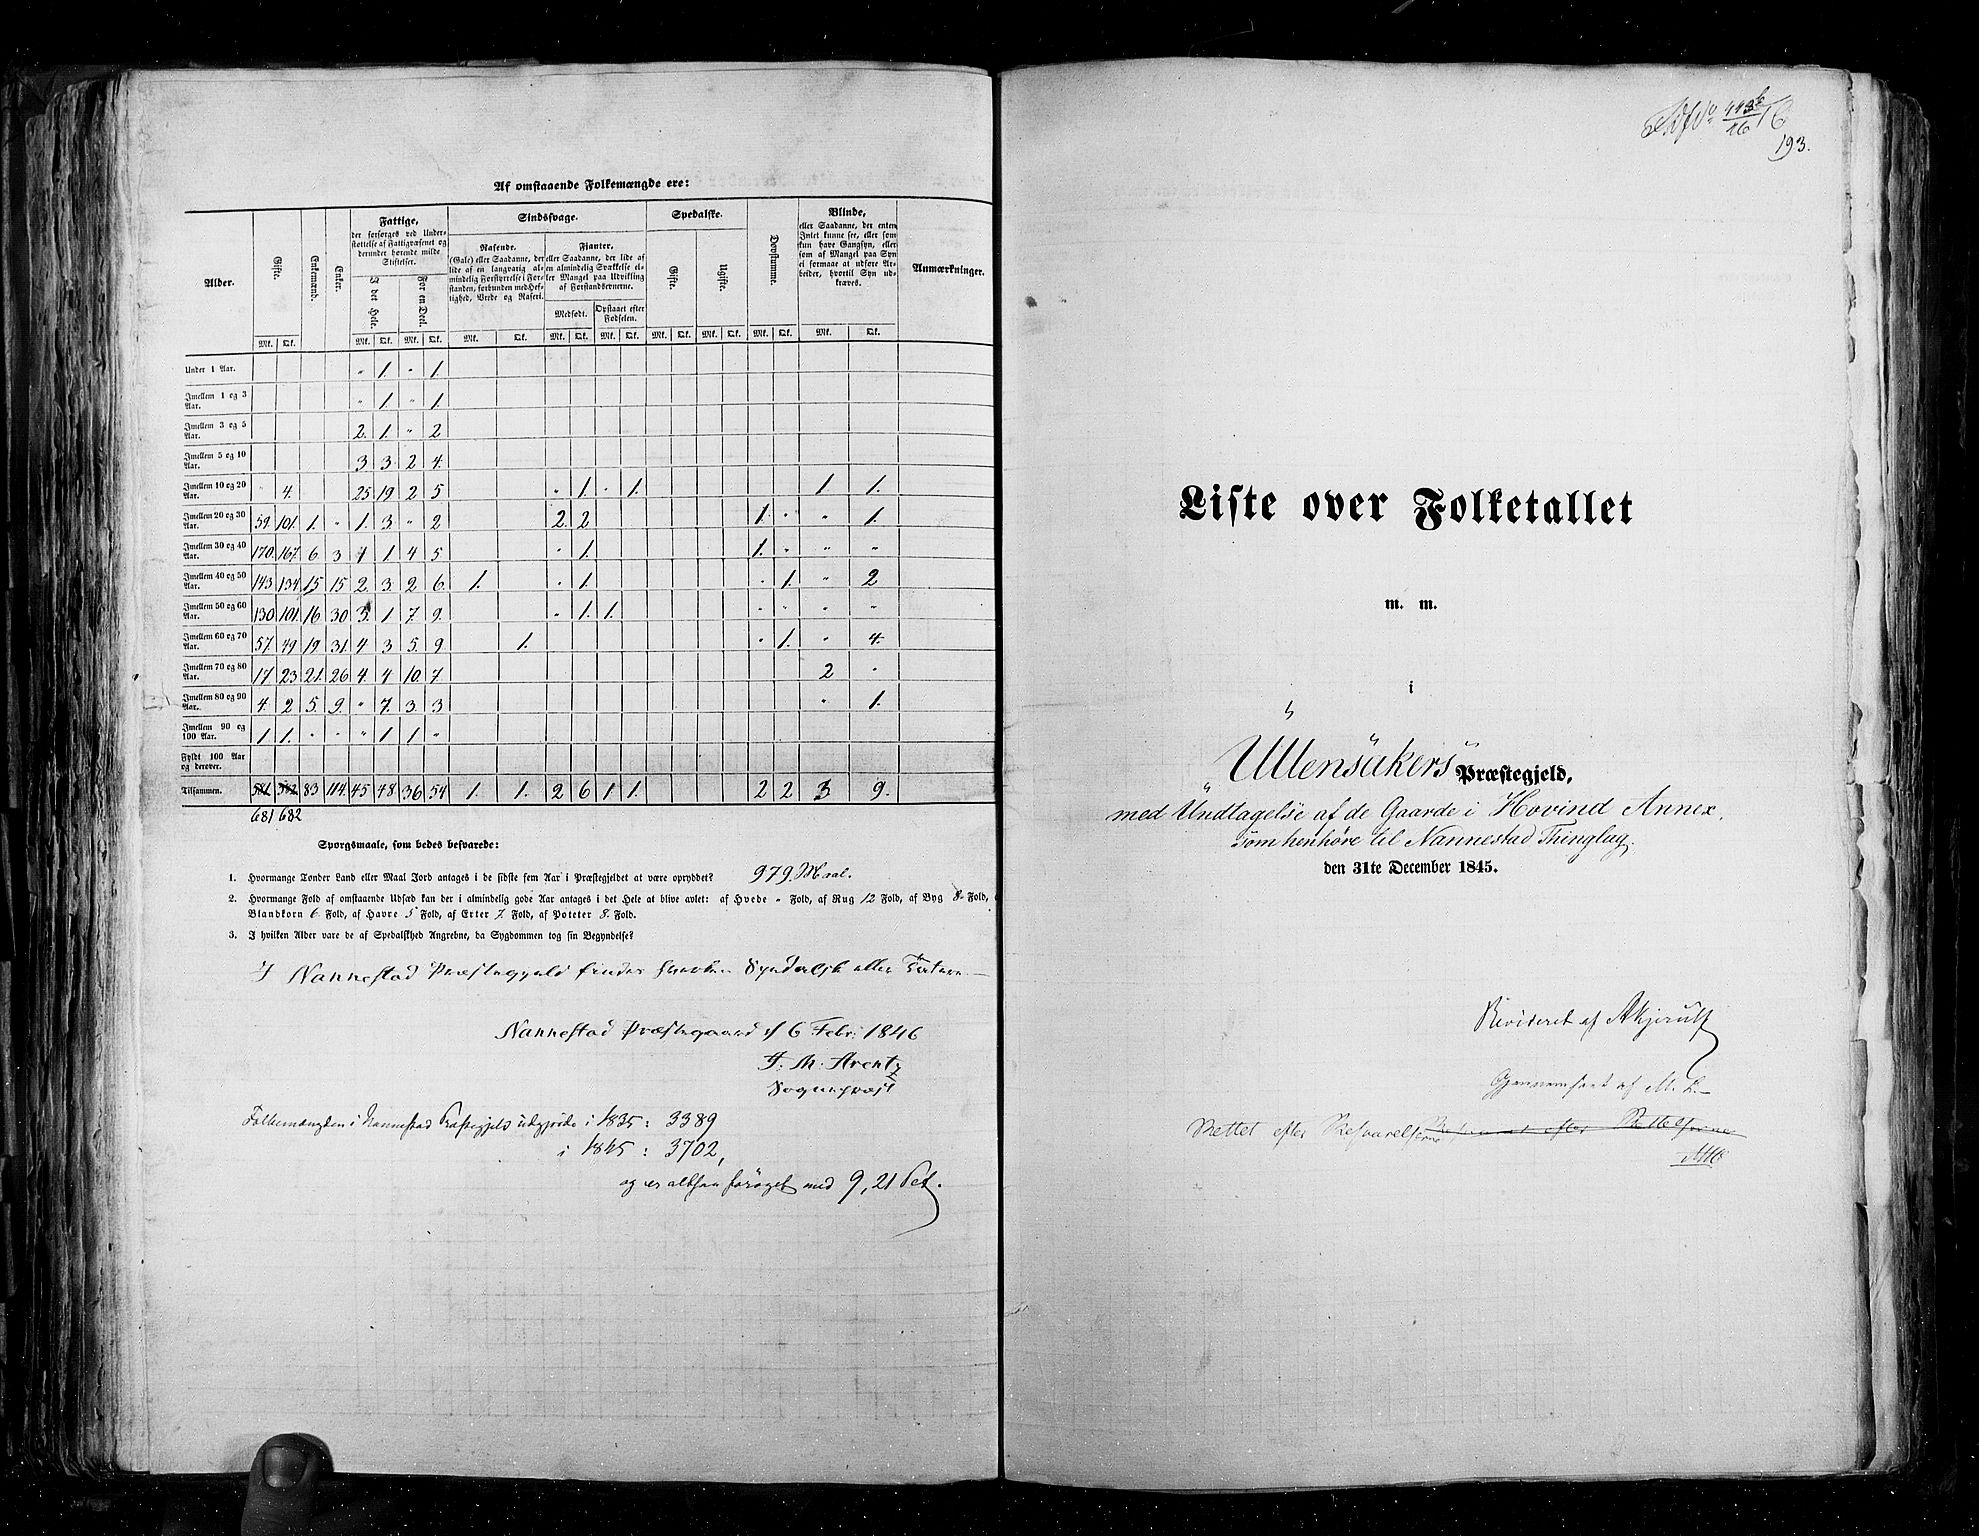 Af omstaaende Folkemængde ere:
Alder. Gifte. Enkemænd. Enker. Fattige, Sindssvage. Spedalske. Døvstumme. Blinde, Anmærkninger.
der forsørges ved Under-
støttelse af Fattigvæsenet og
derunder hørende milde
Stiftelser.
I det Hele. For en Deel.
Rasende.
(Gale) eller Saadanne, der
lide af en langvarig al-
mindelig Forstyrrelse i For-
standen, forbunden med Hef-
tighed, Vrede og Raseri.
Fjanter,
eller Saadanne, der lide af
en almindelig Svækkelse el-
ler Mangel paa Udvikling
af Forstandsevnerne.
Medfødt. Opstaaet efter
Fødselen.
Gifte. Ugifte.
eller Saadanne, der enten
Intet kunne see, eller som
kun have Gangsyn, eller
som af Mangel paa Syn
ei formaae at udføre Ar-
beider, hvortil Syn ud-
kræves.
Mk. Qk. Mk. Qk. Mk. Qk. Mk. Qk. Mk. Qk. Mk. Qk. Mk. Qk. Mk. Qk. Mk. Qk. Mk. Qk.
Under 1 Aar. " 1. " 1.
Imellem 1 og 3 Aar. " 1. " 1.
Imellem 3 og 5 Aar. 2. 1. " 2
Imellem 5 og 10 Aar. 3 3. 2 4.
Imellem 10 og 20 Aar. " 4. 25. 19 2 5 " 1. " 1. 1 1.
Imellem 20 og 30 Aar. 59. 101. 1. " 1. 3. " 2 2. 2 1. " " 1.
Imellem 30 og 40 Aar. 170. 167. 6. 3 1 1 4 5 " 1. 1. " " "
Imellem 40 og 50 Aar. 143. 134. 15 15 2. 3. 2 6. 1. " 1. " 1. " 2
Imellem 50 og 60 Aar. 130. 101. 16. 30 3. 1 7. 9. " 1. 1. " " " "
Imellem 60 og 70 Aar. 57. 49 19 31. 4 3 5. 9 1. " 1. " 4.
Imellem 70 og 80 Aar. 17. 23. 21. 26 4. 4 10. 7. 2 "
Imellem 80 og 90 Aar. 4. 2 5. 9. " 7. 3. 3 " 1.
Imellem 90 og 100 Aar. 1. 1. " " " 1 1. "
Fyldt 100 Aar og derover.
Tilsammen. 581 582 83 114. 45 48 36 54 1. 1. 2 6 1 1. 2 2 3 9.
681 682
Spørgsmaale, som bedes besvarede:
1. Hvormange Tønder Land eller Maal Jord antages i de sidste fem Aar i Præstegjeldet at være opryddet? 979 Maal.
2. Hvormange Fold af omstaaende Udsæd kan der i almindelig gode Aar antages i det Hele at blive avlet: af Hvede " Fold, af Rug 12 Fold, af Byg 8 Fold,
Blandkorn 6 Fold, af Havre 5 Fold, af Erter 7. Fold, af Poteter 8. Fold.
3. I hvilken Alder vare de af Spedalskhed Angrebne, da Sygdommen tog sin Begyndelse?
I Nannestad Præstegjeld findes hverken Spedalsk eller Tatere.
Nannestad Præstegaard d 6 Febr: 1846
J. M. Arentz
Sognepræst
Folkemængden i Nannestad Præstegjeld udgjorde i 1835: 3389
i 1845: 3702,
og er altsaa forøget med 9,21 Pct.
113b
16
16
193.
Liste over Folketallet
m. m.
i
Ullensakers Præstegjeld,
med Undtagelse af de Gaarde i Hovind Annex,
som henhøre til Nannestad Thinglag,
den 31te December 1845.
Revideret af AKjerulf
Gjennemseet af M. L.
Rettet efter Besvarelserne